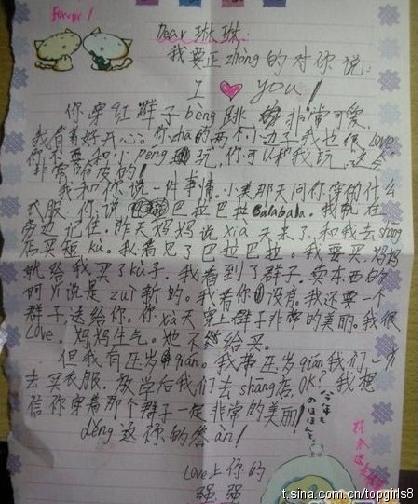 Forever!
Dear 琳琳
我要正zhòng的对你说
I ❤ you!
你穿红群子bèng跳 非常可爱,
我有有好开心。你zha的两个小边子我也很love.
你不要和小peng 玩,你可以和我玩,这会
非常pi的!
我和你说一件事情。小美那天问你穿的什么
衣服,你说 巴拉巴拉balabala。我就在
旁边记住。昨天妈妈说xià天来了,和我去shang
店买短kù。我看见了巴拉巴拉,我要买,妈妈
就给我买了ku子,我看到了群子。卖东西的
阿yí说是zuì新的。我看你 没有。我还要一个
群子送给你,你xà天穿上群子非常的美丽。我很
love。妈妈生气。她不给买。
但我有压岁qián。我带压岁qián,我们一齐
去买衣服,放学后我们去shang店,OK!我想
信你穿着那个群子一定非常的美丽!
děng这你的答àn!
love上你的
强强
t.sina.com.cn/topgirls8